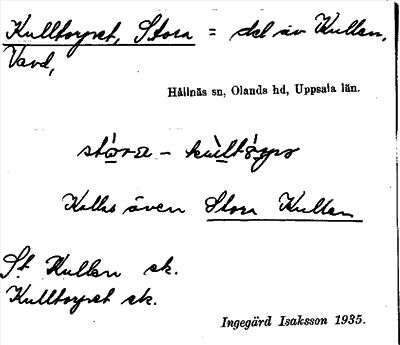 Kulltorpet, Stora = del av Kullen,
Vavd,
Hållnäs sn, Olands hd, Uppsala län.
stɷ́ra - kùltɷ́rpə
Kallas även Stora Kullen
St. Kullen ek.
Kulltorpet ek.
Ingegärd Isaksson 1935.